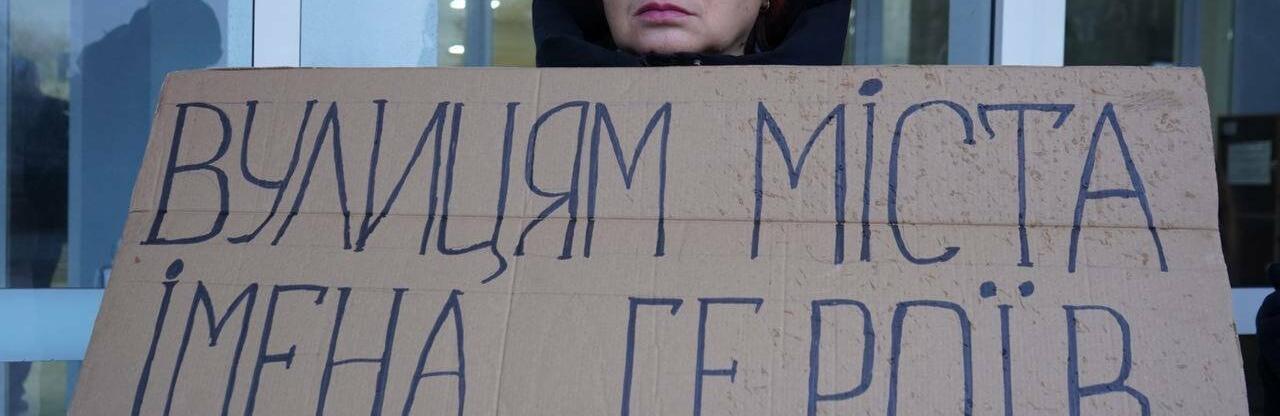 ВУЛИЦЯМ МІСТА
ІМЕНА ГЕРОЇВ